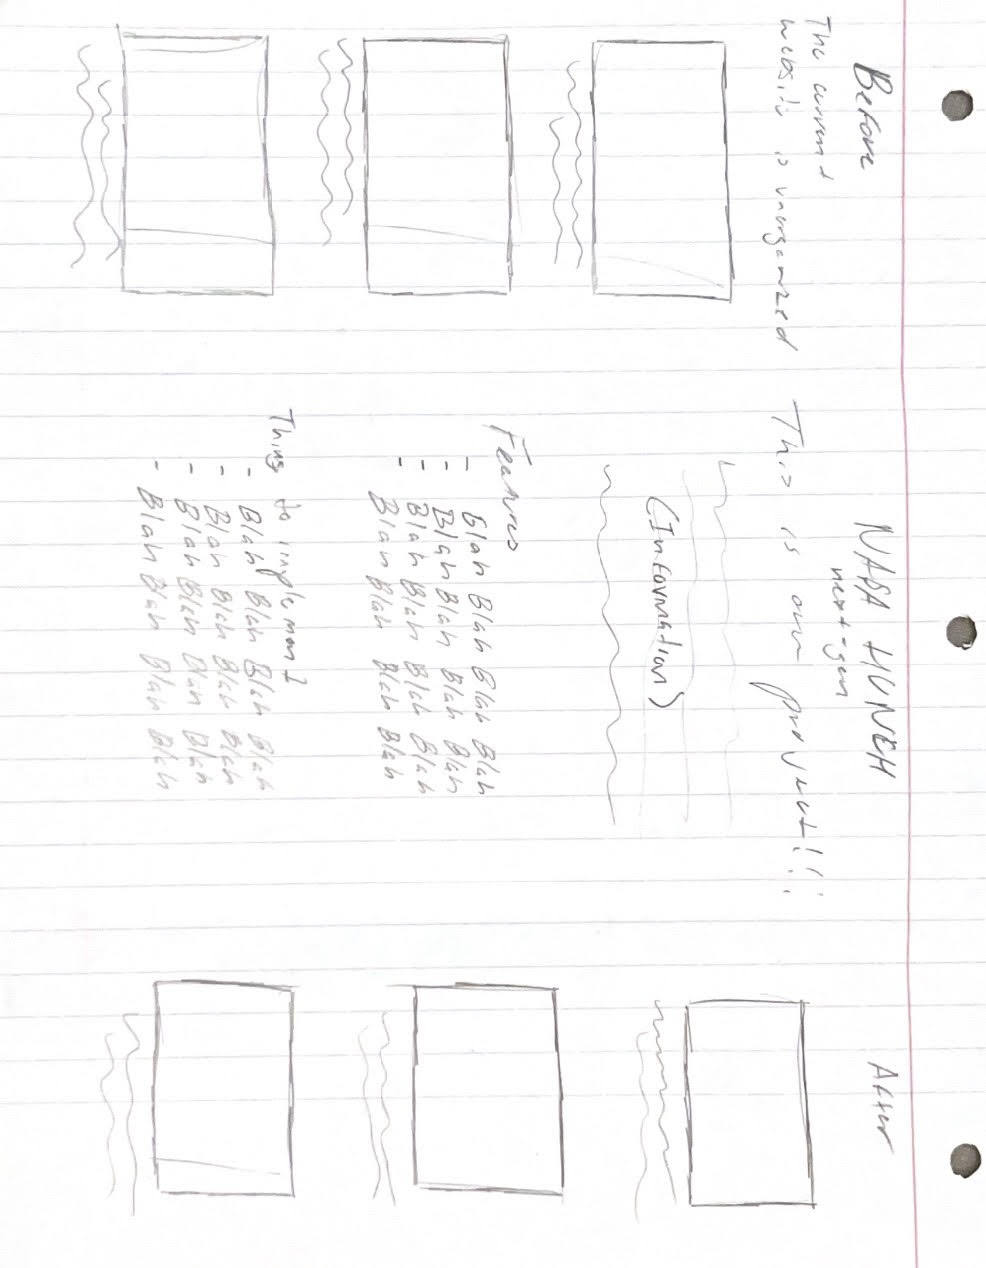 Before
The current
website is unorganized
NASA HUNCH
next-gen
This is our product!!!
(Information)
Features
- Blah Blah Blah Blah
- Blah Blah Blah Blah
- Blah Blah Blah Blah
- Blah Blah Blah Blah
Things to implement
- Blah Blah Blah Blah
- Blah Blah Blah Blah
- Blah Blah Blah Blah
- Blah Blah Blah Blah
After